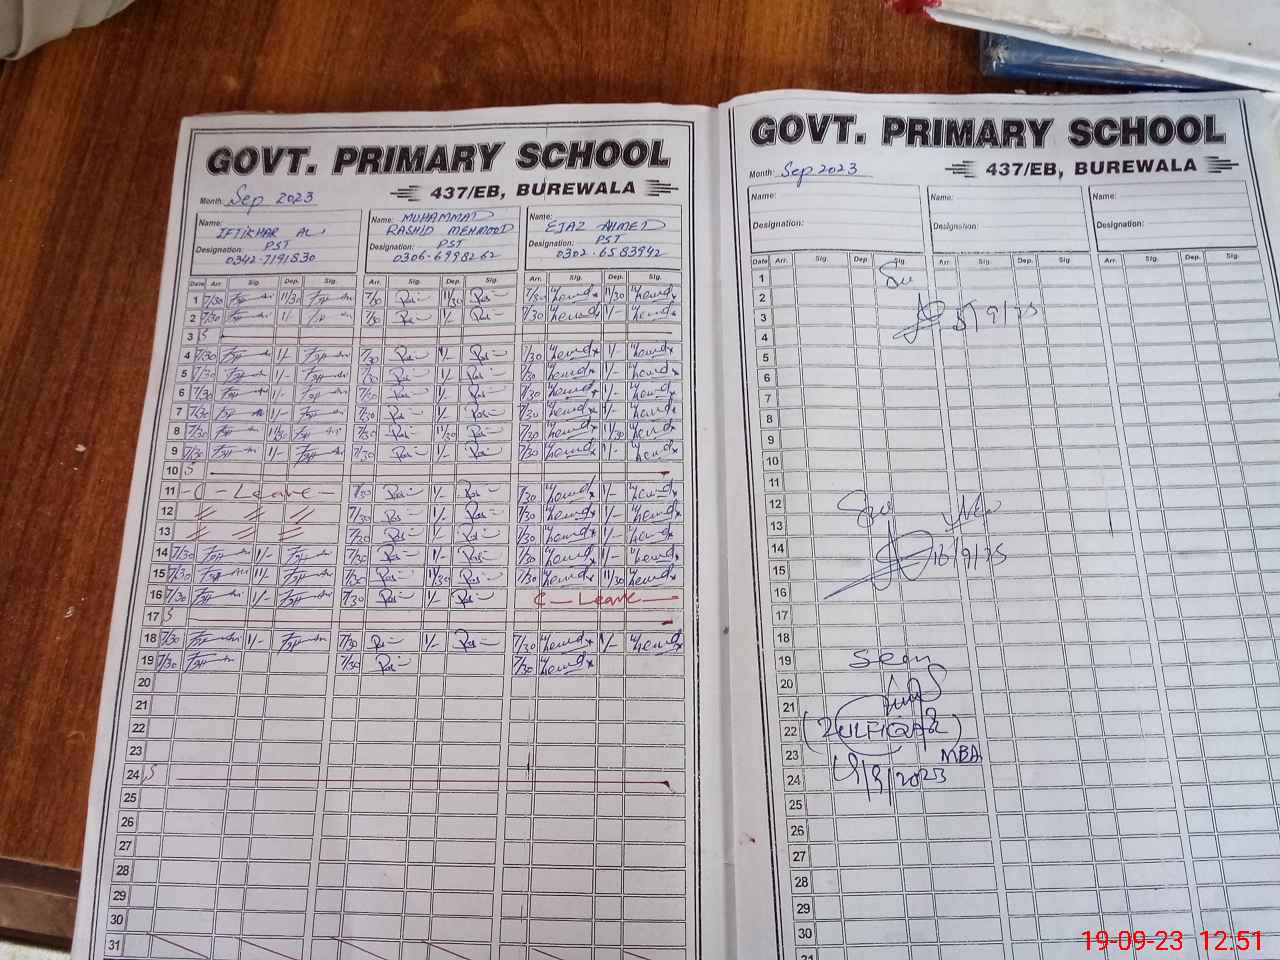 GOVT. PRIMARY SCHOOL
437/EB, BUREWALA
Month: Sep 2023
Name: IFTIKHAR ALI
Designation: PST
0342-7191830
Name: MUHAMMAD RASHID MEHMOOD
Designation: PST
0306-6998262
Name: EJAZ AHMED
Designation: PST
0302-6583942
Date Arr. Sig. Dep. Sig. Arr. Sig. Dep. Sig. Arr. Sig. Dep. Sig.
1 7/30 11/30 7/30 11/30 7/30 11/30
2 7/30 1/- 7/30 1/- 7/30 1/-
3 S
4 7/30 1/- 7/30 1/- 7/30 1/-
5 7/30 1/- 7/30 1/- 7/30 1/-
6 7/30 1/- 7/30 1/- 7/30 1/-
7 7/30 1/- 7/30 1/- 7/30 1/-
8 7/30 11/30 7/30 11/30 7/30 11/30
9 7/30 1/- 7/30 1/- 7/30 1/-
10 S
11 - C - Leave - 7/30 1/- 7/30 1/-
12 7/30 1/- 7/30 1/-
13 7/30 1/- 7/30 1/-
14 7/30 1/- 7/30 1/- 7/30 1/-
15 7/30 11/- 7/30 11/30 7/30 11/30
16 7/30 1/- 7/30 1/- C - Leave -
17 S
18 7/30 1/- 7/30 1/- 7/30 1/-
19 7/30 7/30 7/30
20
21
22
23
24 S
25
26
27
28
29
30
31
GOVT. PRIMARY SCHOOL
437/EB, BUREWALA
Month: Sep 2023
Name:
Designation:
Name:
Designation:
Name:
Designation:
Date Arr. Sig. Dep. Sig. Arr. Sig. Dep. Sig. Arr. Sig. Dep. Sig.
1
2
3
4
5
6
7
8
9
10
11
12
13
14
15
16
17
18
19 Seen
20
21
22 (ZULFIQAR)
23 MEA
24 19/9/2023
25
26
27
28
29
30
31
19-09-23 12:51